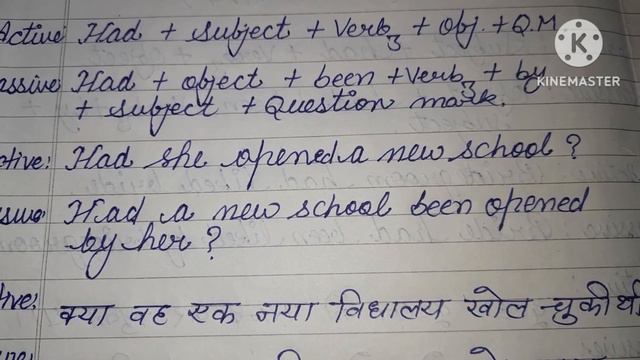 Active: Had + subject + Verb3 + Obj. + Q.M
KINEMASTER
assive: Had + object + been + Verb3 + by
+ subject + Question mark.
tive: Had she opened a new school ?
Had a new school been opened
by her ?
tive: क्या वह एक नया विद्यालय खोल चुकी थी